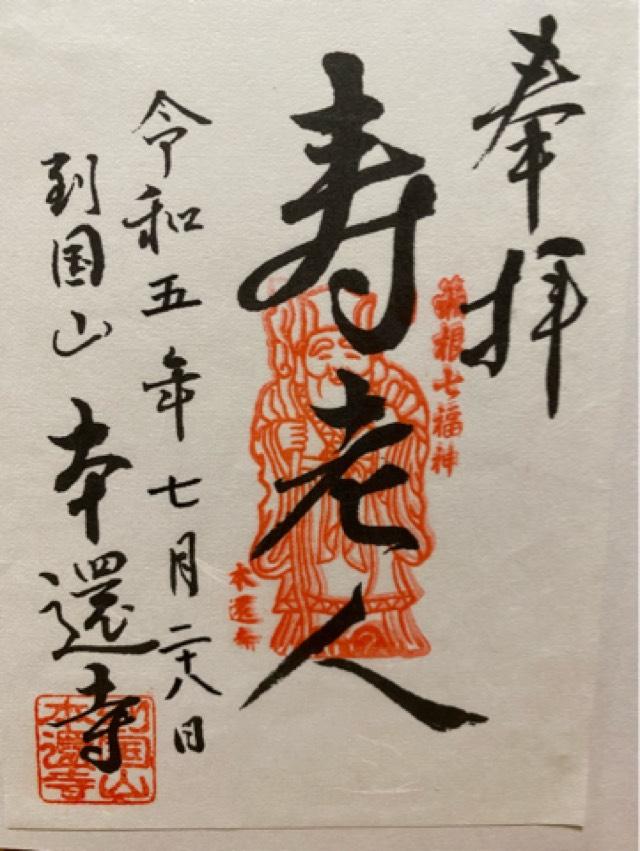 奉拝
箱根七福神
寿老人
本還寺
令和五年七月二十八日
到国山 本還寺
到国山
本還寺